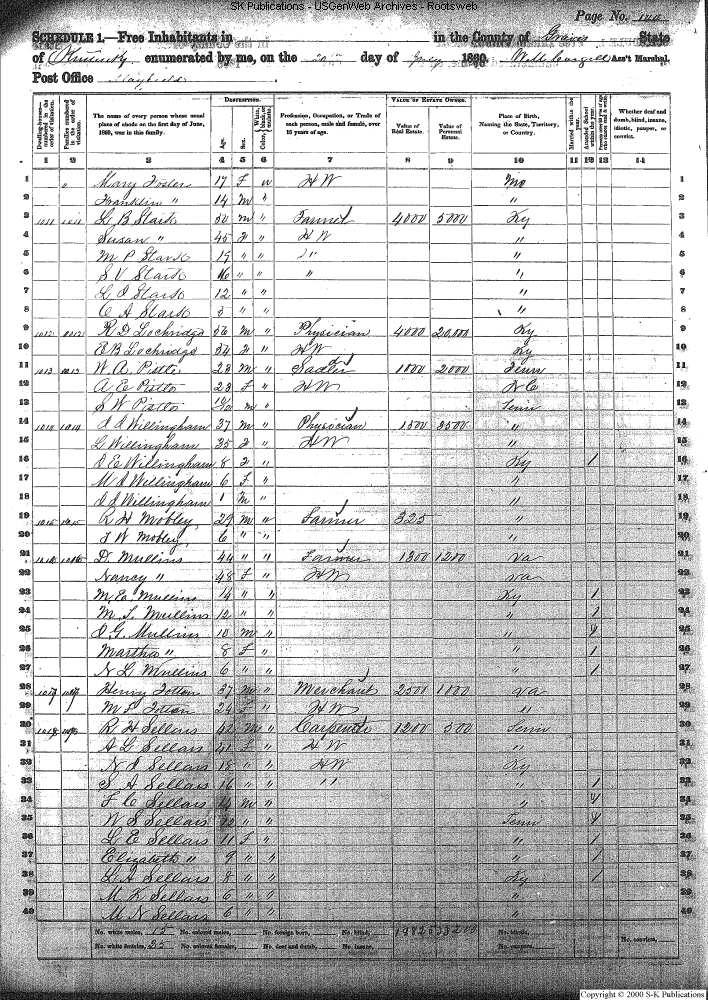 SK Publications - USGenWeb Archives - Rootsweb
Page No. 140
SCHEDULE 1.—Free Inhabitants in in the County of Graves State
of Kentucky enumerated by me, on the 20th day of July 1860. Ass't Marshal.
Post Office Mayfield
Dwelling-houses—numbered in the order of visitation.
Families numbered in the order of visitation.
The name of every person whose usual place of abode on the first day of June, 1860, was in this family.
DESCRIPTION.
Age.
Sex.
Color, White, black, or mulatto.
Profession, Occupation, or Trade of each person, male and female, over 15 years of age.
VALUE OF ESTATE OWNED.
Value of Real Estate.
Value of Personal Estate.
Place of Birth, Naming the State, Territory, or Country.
Married within the year.
Attended School within the year.
Whether deaf and dumb, blind, insane, idiotic, pauper, or convict.
1 2 3 4 5 6 7 8 9 10 11 12 13 14
1 " Mary Foster 17 F W H W Mo 1
2 Franklin " 14 m " " 2
3 1011 1011 L B Stark 50 m " Farmer 4000 5000 Ky 3
4 Susan " 45 f " H W " 4
5 M P Stark 19 " " " " 5
6 S V Stark 16 " " " " 6
7 L J Stark 12 " " " 7
8 C A Stark 5 " " " 8
9 1012 R D Lochridge 56 m " Physician 4000 20,000 Ky 9
10 E B Lochridge 34 f " H W Ky 10
11 1013 1013 W. A. 28 m " Sadler 1000 2000 Tenn 11
12 A E 23 F " H W N C 12
13 S W m " Tenn 13
14 1014 1014 J J Willingham 37 m " Physician 1500 3500 " 14
15 L Willingham 35 f " H W " 15
16 J E Willingham 8 f " Ky 1 16
17 M J Willingham 6 F " " 17
18 J J Willingham 1 m " " 18
19 1015 1015 R H Mobley 29 m " Farmer 325 " 19
20 J W Mobley 6 " " " 20
21 1016 1016 D. Mullins 44 " " Farmer 1300 1200 Va 21
22 Nancy " 48 F " H W Va 22
23 M. E. Mullins 14 " " Ky 1 23
24 M. T. Mullins 12 " " " 1 24
25 J G Mullins 10 m " " 1 25
26 Martha " 8 F " " 1 26
27 N L Mullins 6 " " " 1 27
28 1017 1017 Henry Totten 37 m " Merchant 2500 1000 Va 28
29 M T Totten 24 F " H W " 29
30 1018 1018 R H Sellars 42 m " Carpenter 1200 500 Tenn 30
31 A G Sellars 41 F " H W " 31
32 N J Sellars 18 " " H W Ky 32
33 S A Sellars 16 " " " " 1 33
34 F C Sellars 14 m " " 1 34
35 W S Sellars 12 " " Tenn 1 35
36 L E Sellars 11 F " " 1 36
37 Elizabeth " 9 " " " 1 37
38 L A Sellars 8 " " Ky 1 38
39 M K Sellars 6 " " " 39
40 M N Sellars 6 " " " 40
No. white males, 15 No. colored males, No. foreign born, No. blind,
No. white females, 25 No. colored females, No. deaf and dumb, No. insane, No. idiotic, No. paupers, No. convicts,
Copyright © 2000 S-K Publications